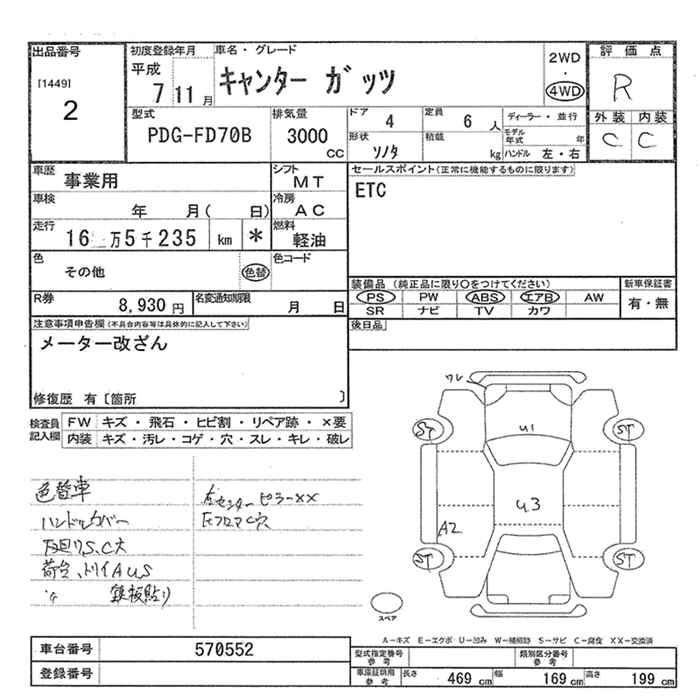 出品番号 初度登録年月 車名・グレード 評価点
[1449] 平成 キャンター ガッツ 2WD ・ 4WD R
2 7 11月
外装 内装
型式 排気量 ドア 4 定員 6人 ディーラー・並行 C C
PDG-FD70B 3000 CC 形状 ソノタ 積載 kg モデル年式 年 ハンドル 左・右
車歴 事業用 シフト MT セールスポイント(正常に機能するものに限ります)
車検 年 月( 日) 冷房 AC ETC
走行 16万5千235 km * 燃料 軽油
色 その他 色替 色コード
装備品 (純正品に限り○をつけてください) 新車保証書
PS PW ABS エアB AW 有・無
R券 8,930円 名変通知期限 月 日 SR ナビ TV カワ
注意事項申告欄(不具合内容等は具体的に記入して下さい) 後日品
メーター改ざん
修復歴 有〔箇所 〕
検査員記入欄 FW キズ・飛石・ヒビ割・リペア跡・×要
内装 キズ・汚レ・コゲ・穴・スレ・キレ・破レ
ワレ
U1
ST ST
U3
A2
ST ST
色替車 左センターピラーXX
ハンドルカバー 左フロアC穴
下回りS、C大
荷台、トリイAUS
〃 鉄板貼り
スペア
A-キズ E-エクボ U-凹み W-補修跡 S-サビ C-腐食 XX-交換済
車台番号 570552 型式指定番号 参考 類別区分番号 参考
登録番号 車庫証明用 参考 長さ 469 cm 幅 169 cm 高さ 199 cm